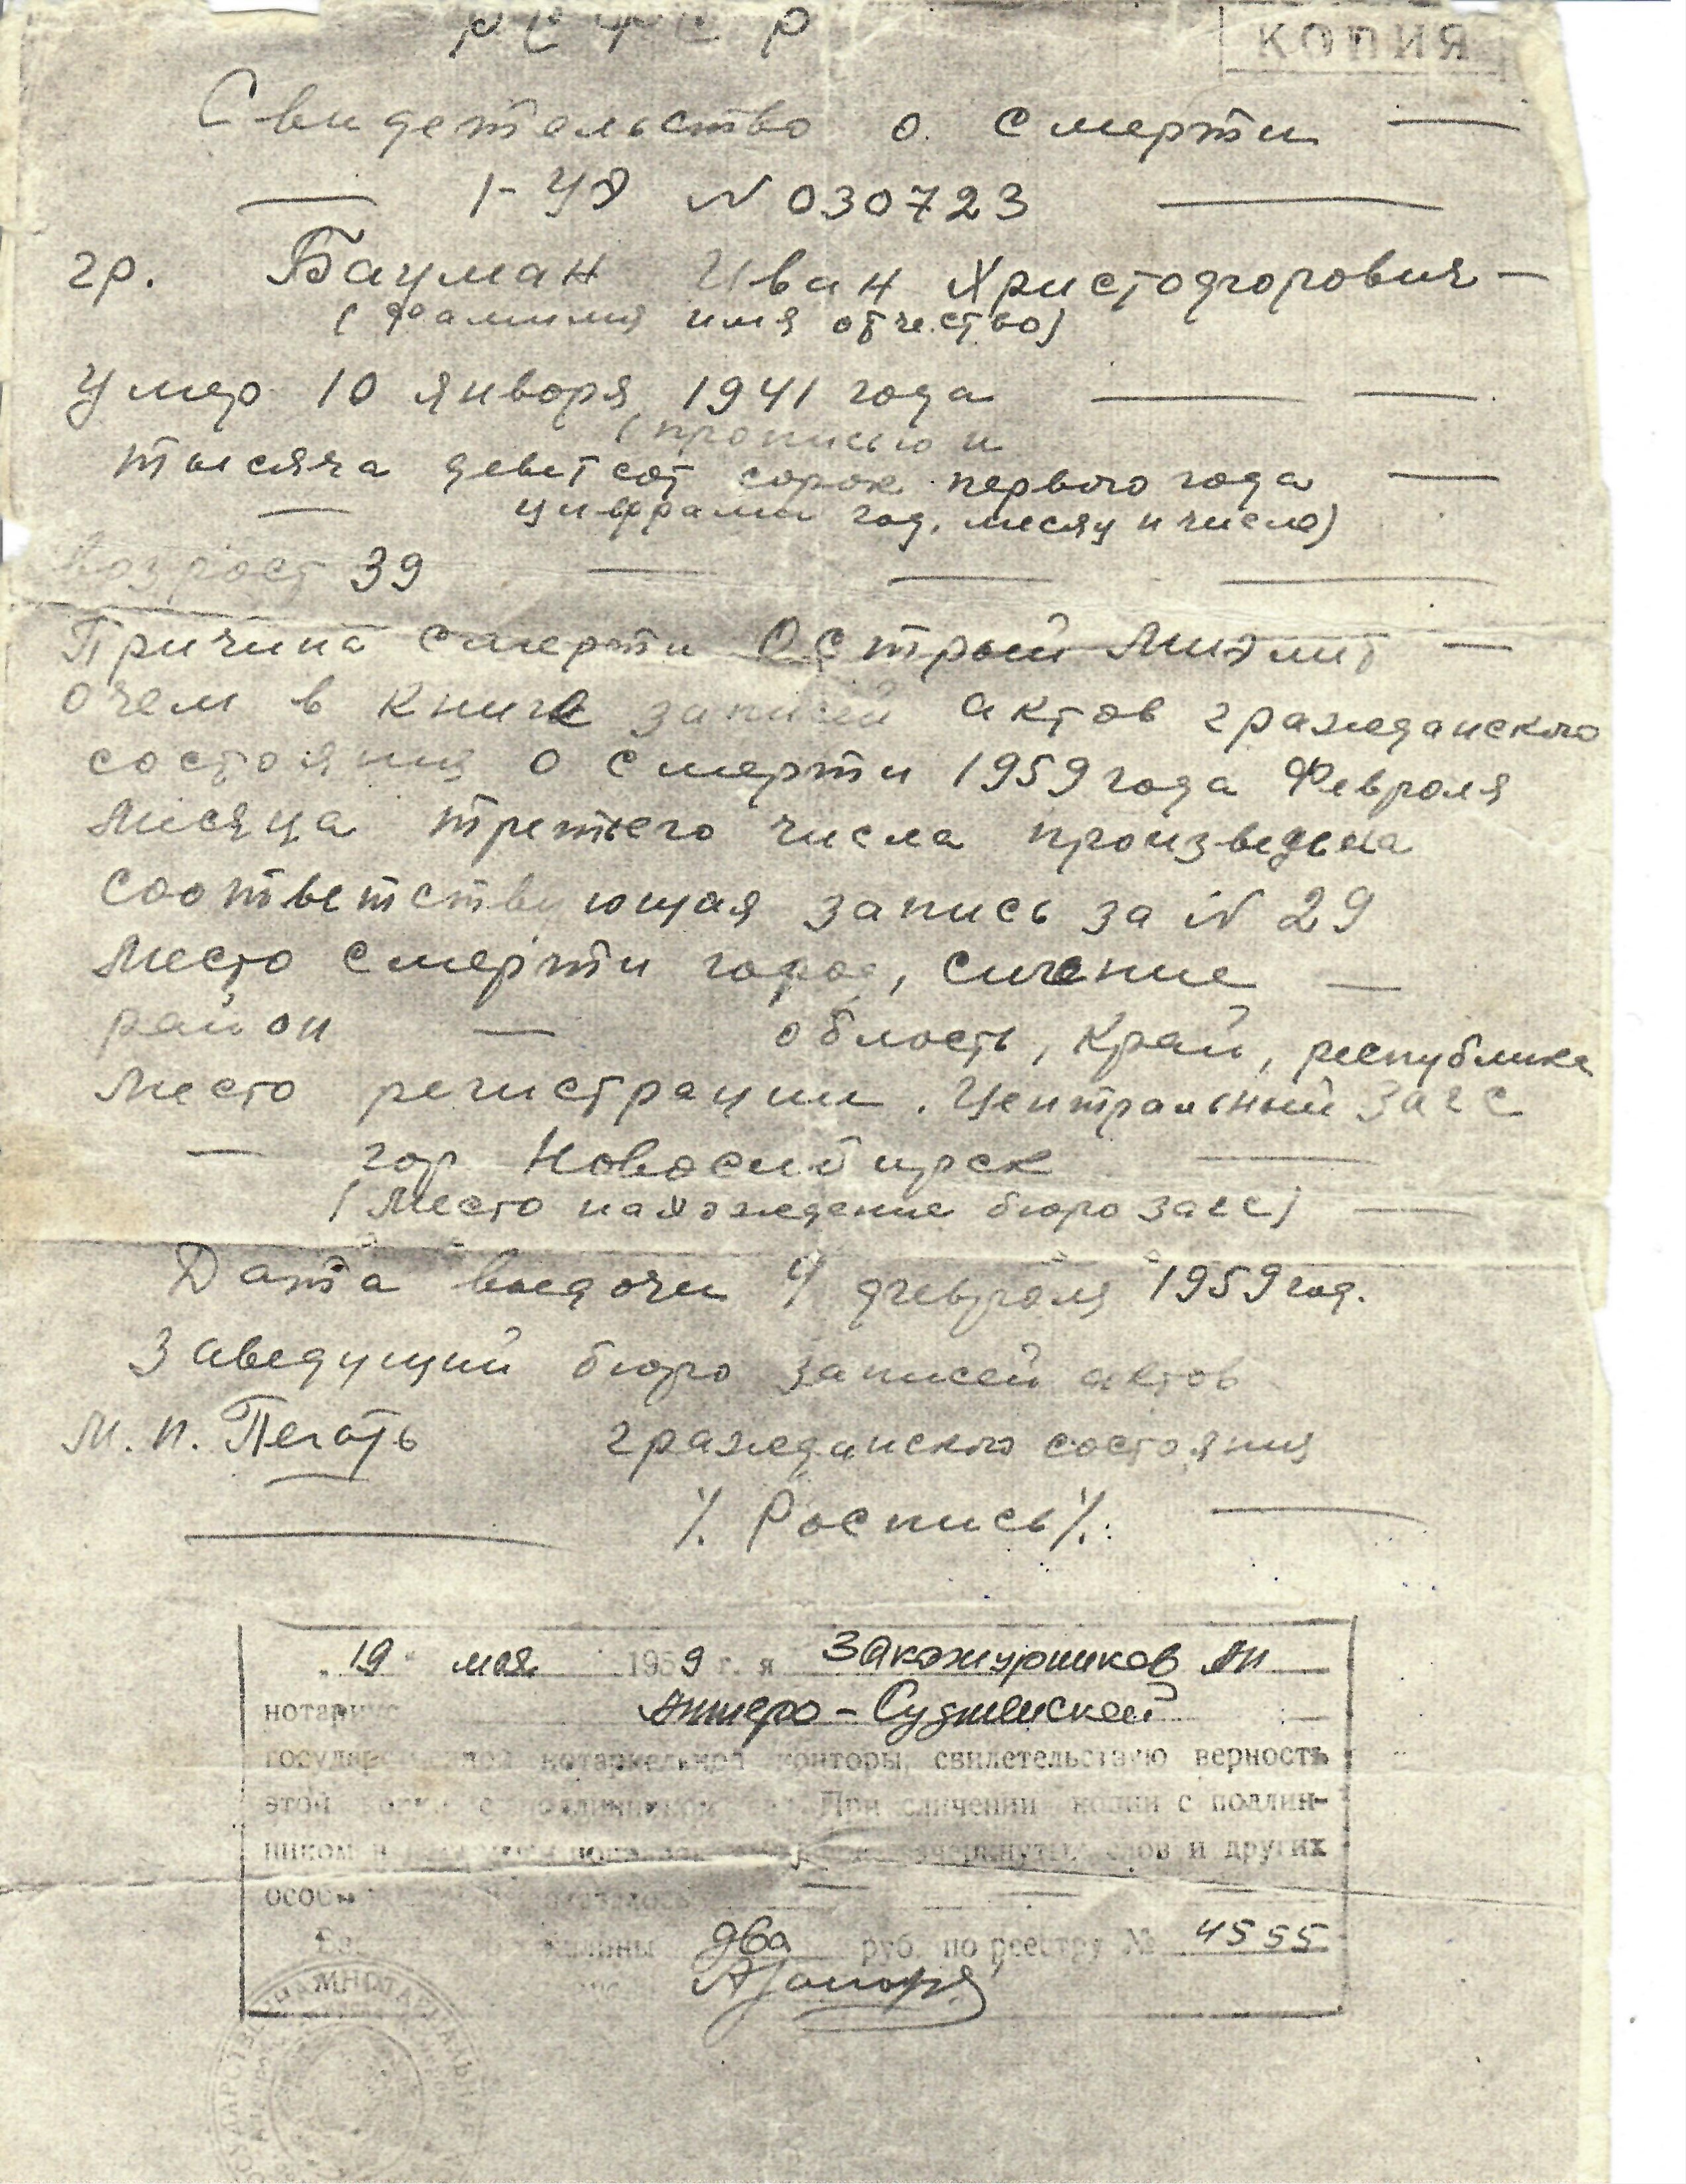 РСФСР
КОПИЯ
Свидетельство о смерти —
— I-УЯ № 030723 —
гр. Бауман Иван Христофорович —
(фамилия имя отчество)
умер 10 января 1941 года — —
(прописью и
тысяча девятсот сорок первого года —
— цифрами год, месяц и число)
Возрост 39 — — —
Причина смерти Острый Миэлит —
о чем в книге записей актов гражданского
состояния о смерти 1959 года Февроля
месяца третьего числа произведена
соответствующая запись за № 29
Место смерти город, силение —
район — область, Край, республика
Место регистрации. Центральный загс
— гор Новосибирск —
(Место нахождение бюро загс) —
Дата выдачи 4 февроля 1959 год.
Заведущий бюро записей актов
М.П. Печать гражданского состояния
— ٪ Роспись ٪. —
„19" мая 1959 г. я Закожурников АП
нотариус Анжеро-Судженской
государственной нотариальной конторы, свидетельствую верность
этой копии с подлинником ее. При сличении копии с подлин-
ником зачеркнутых слов и других
особ
два руб. по реестру № 4555